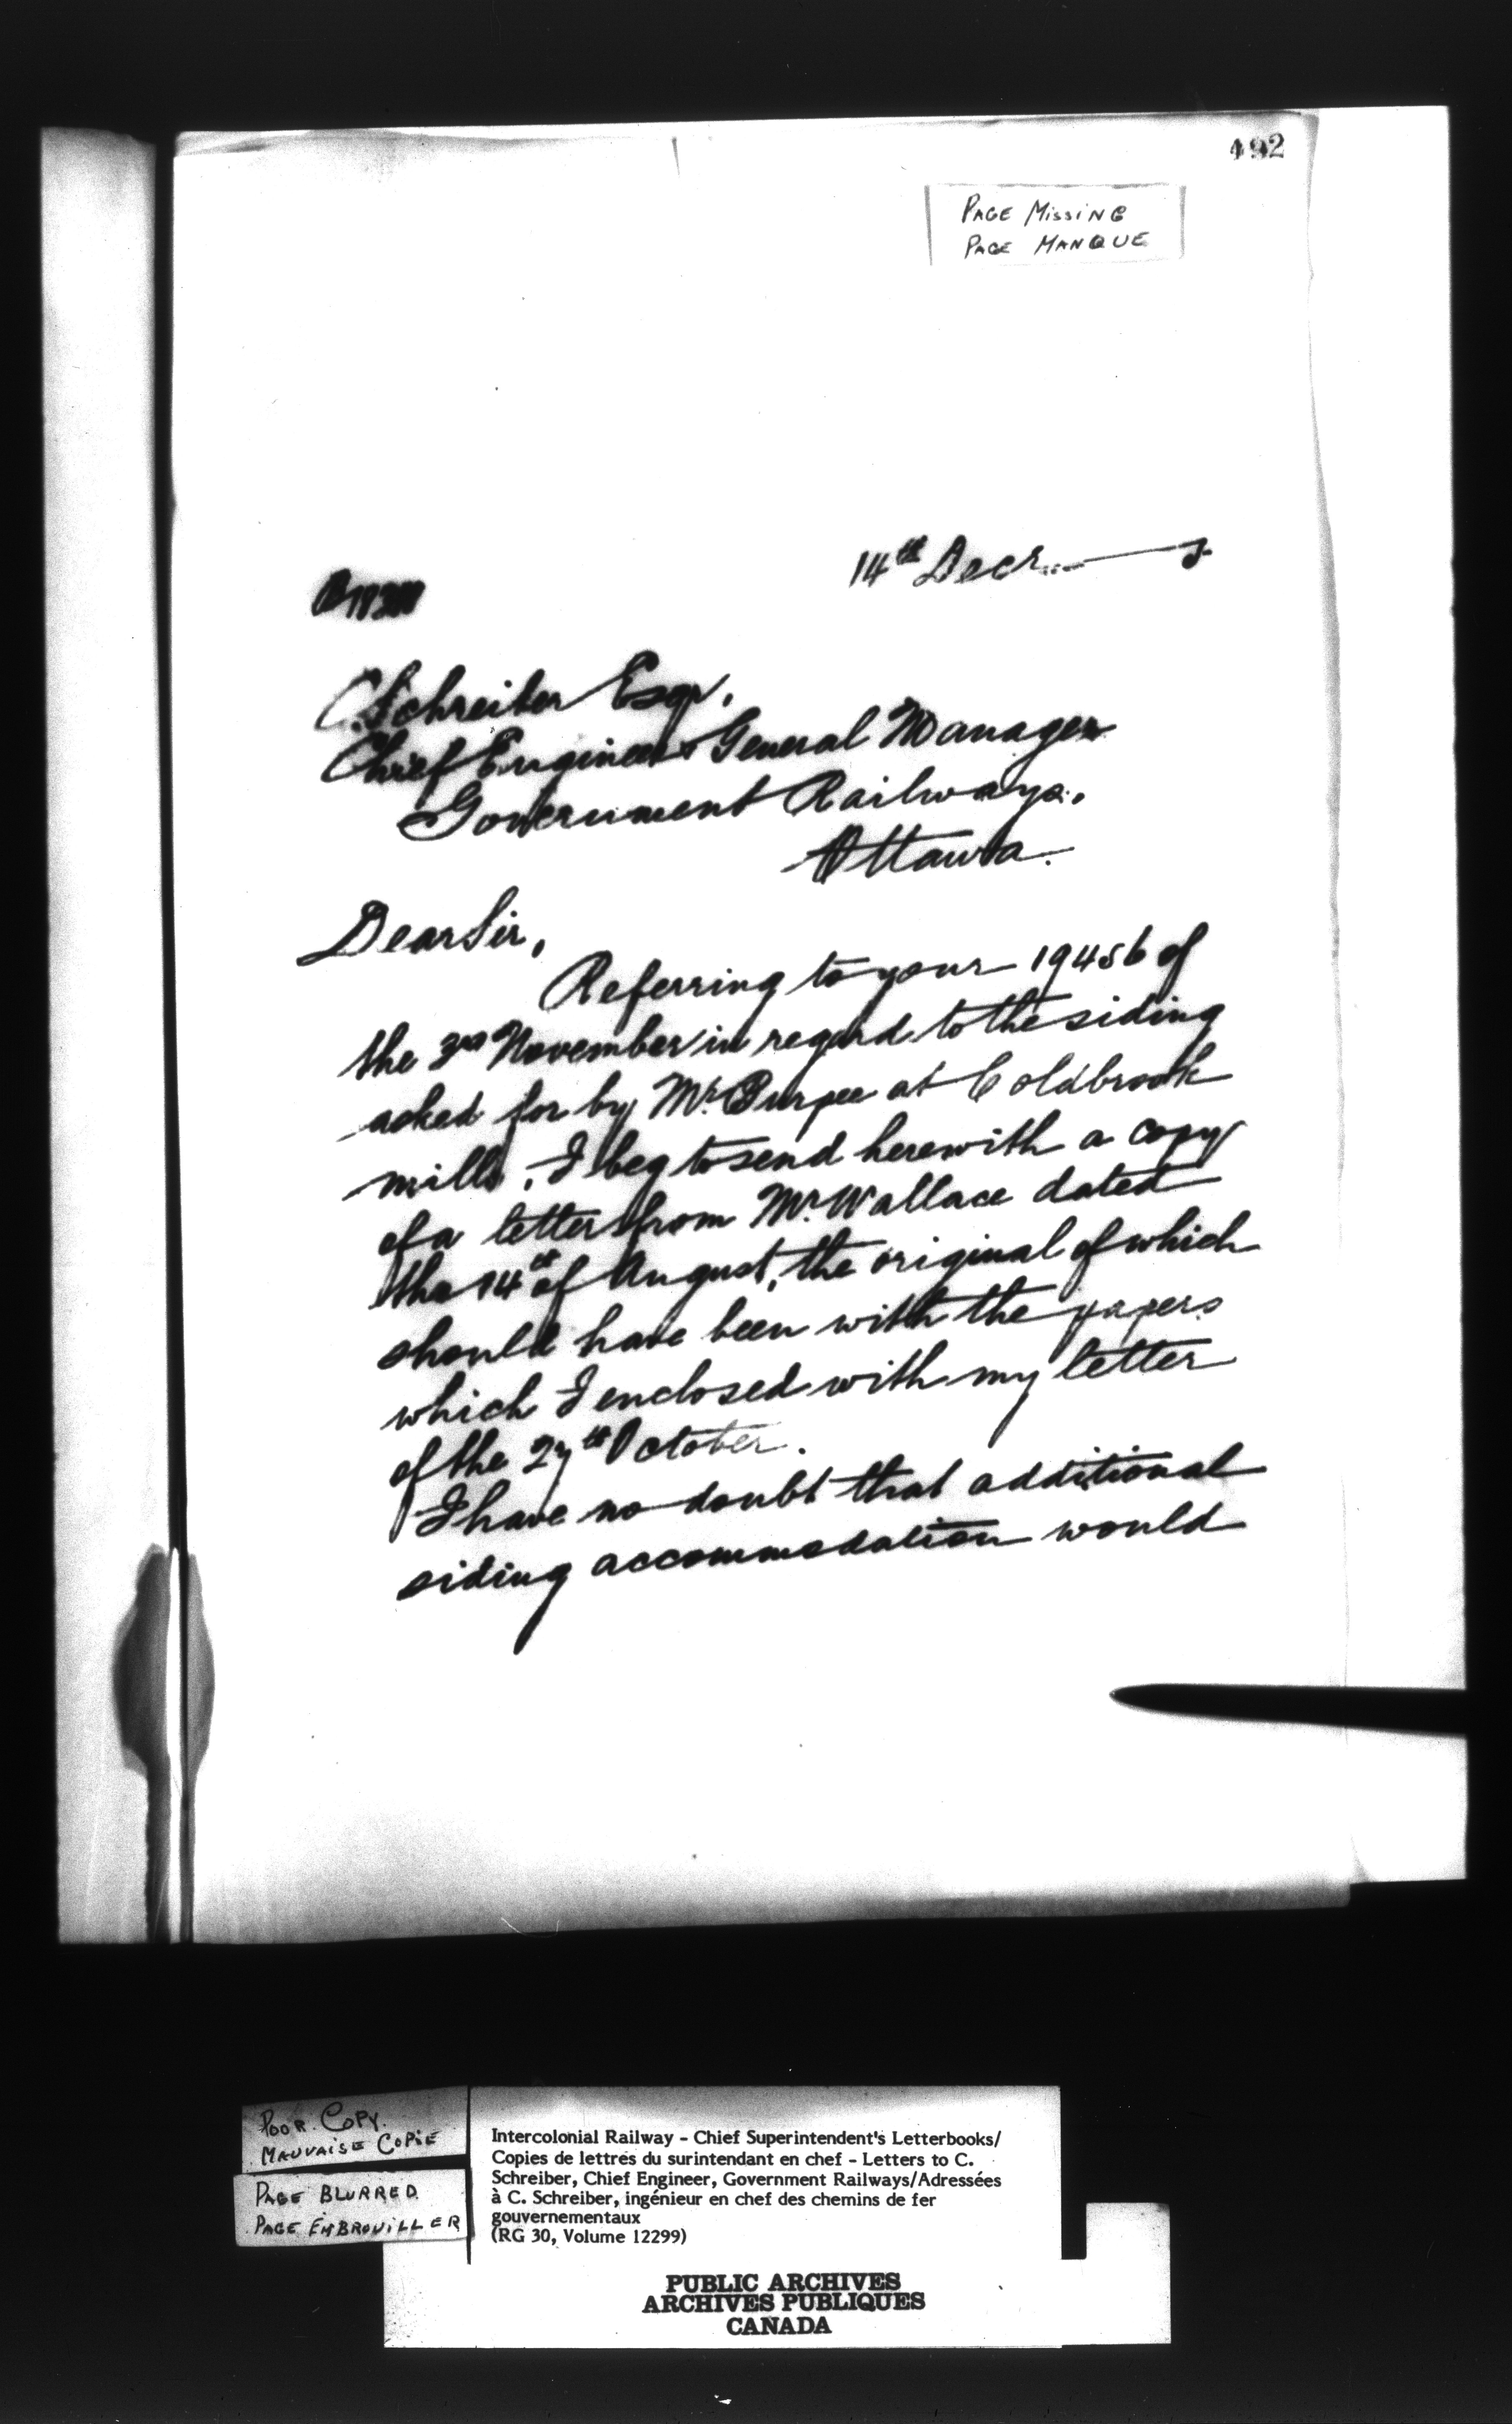 492
PAGE MISSING
PAGE MANQUE
14th Decr. 5
C. Schreiber Esqr,
Chief Engineer & General Manager
Government Railways.
Ottawa.
Dear Sir,
Referring to your 19456 of
the 3rd November in regard to the siding
asked for by Mr. Burpee at Coldbrook
mills, I beg to send herewith a copy
of a letter from Mr. Wallace dated
the 14th of August, the original of which
should have been with the papers
which I enclosed with my letter
of the 27th October.
I have no doubt that additional
siding accommodation would
POOR COPY.
MAUVAISE COPIE
PAGE BLURRED
PAGE EMBROUILLER
Intercolonial Railway - Chief Superintendent's Letterbooks/
Copies de lettres du surintendant en chef - Letters to C.
Schreiber, Chief Engineer, Government Railways/Adressées
à C. Schreiber, ingénieur en chef des chemins de fer
gouvernementaux
(RG 30, Volume 12299)
PUBLIC ARCHIVES
ARCHIVES PUBLIQUES
CANADA